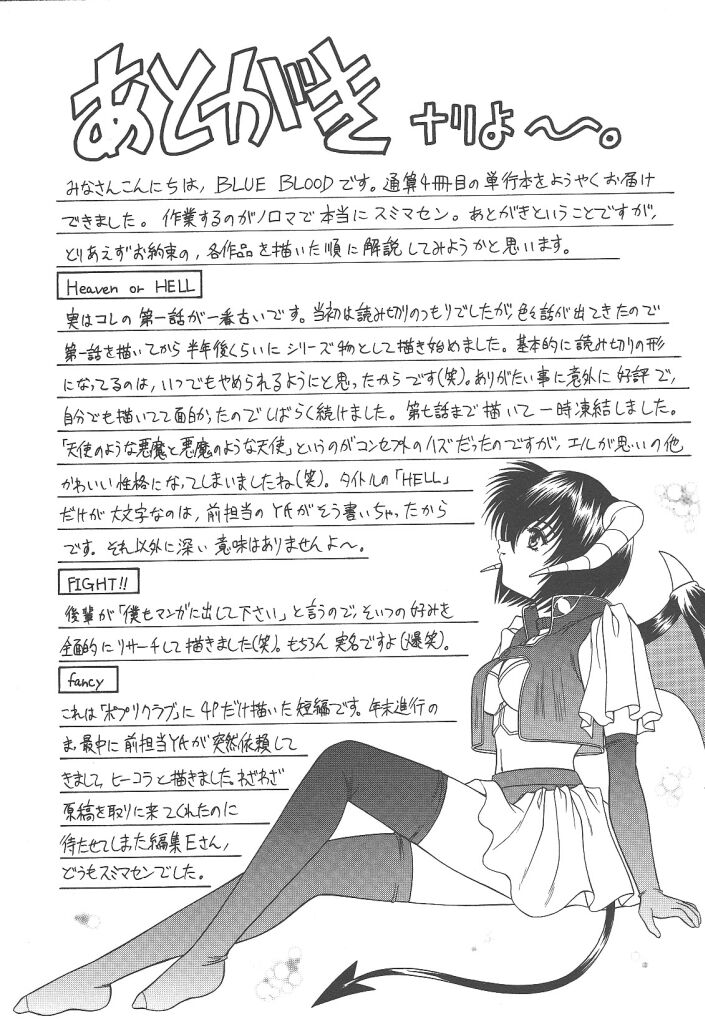 あとがき ナリよ〜。
みなさんこんにちは, BLUE BLOODです。通算4冊目の単行本をようやくお届け
できました。作業するのがノロマで本当にスミマセン。あとがきということですが,
とりあえずお約束の, 各作品を描いた順に解説してみようかと思います。
Heaven or HELL
実はコレの第一話が一番古いです。当初は読み切りのつもりでしたが, 色々話が出てきたので
第一話を描いてから半年後くらいにシリーズ物として描き始めました。基本的に読み切りの形
になってるのは, いつでもやめられるようにと思ったからです(笑)。ありがたい事に意外に好評で,
自分でも描いてて面白かったのでしばらく続けました。第七話まで描いて一時凍結しました。
「天使のような悪魔と悪魔のような天使」というのがコンセプトのハズだったのですが, エルが思いの他
かわいい性格になってしまいましたね(笑)。タイトルの「HELL」
だけが大文字なのは, 前担当のYAがそう書いちゃったから
です。それ以外に深い意味はありませんよ〜。
FIGHT!!
後輩が「僕もマンガに出して下さい」と言うので, そいつの好みを
全面的にリサーチして描きました(笑)。もちろん実名ですよ(爆笑)。
fancy
これは「ポプリクラブ」に4Pだけ描いた短編です。年末進行の
ま,最中に前担当YAが突然依頼して
きまして, ヒーコラと描きました。わざわざ
原稿を取りに来てくれたのに
待たせてしまった編集Eさん,
どうもスミマセンでした。